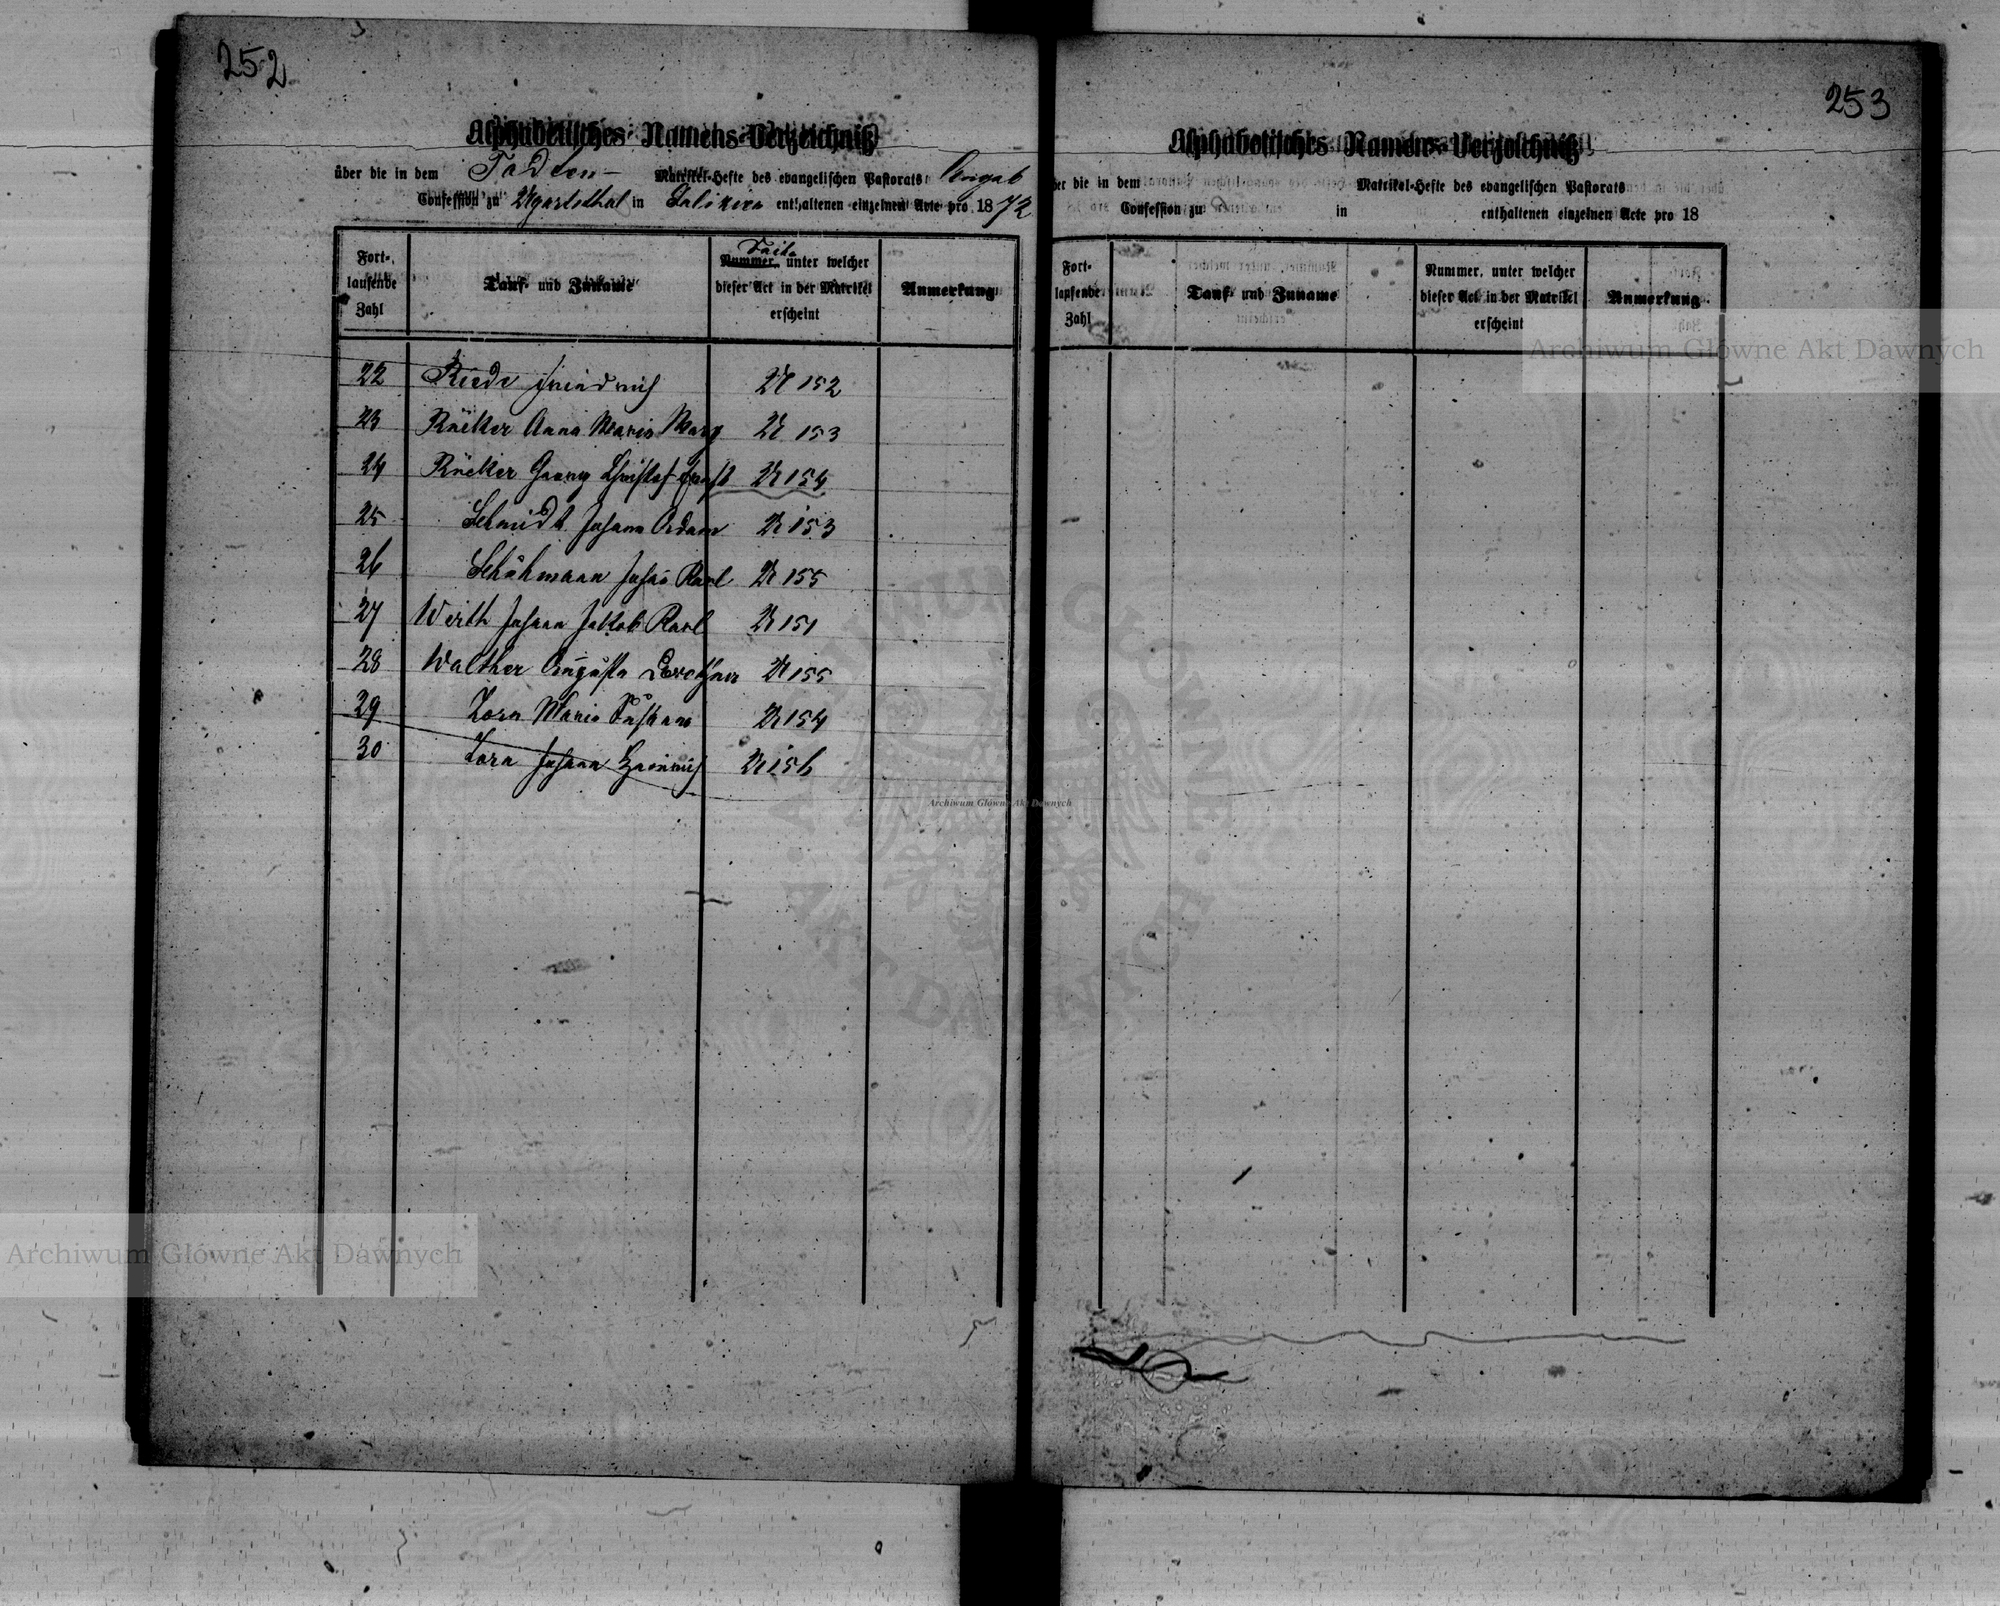 252
Alphabetisches Namens-Verzeichniß
über die in dem Todten- Matrikel-Hefte des evangelischen Pastorats Augsb
Confession zu Ugartsthal in Galizien enthaltenen einzelnen Acte pro 1872
Fort-
laufende
Zahl
Tauf- und Zuname
Seite
Nummer, unter welcher
dieser Act in der Matrikel
erscheint
Anmerkung
22 Riede Friedrich № 152
23 Rücker Anna Maria Marg № 153
24 Rücker Georg Christof № 154
25 Schmidt Johann Adam № 153
26 Karl № 155
27 Werth Johann Jakob Karl № 151
28 Walther Augusta № 155
29 Zorn Maria № 154
30 Zorn Johann Heinrich № 156
253
Alphabetisches Namens-Verzeichniß
er die in dem Matrikel-Hefte des evangelischen Pastorats
Confession zu in enthaltenen einzelnen Acte pro 18
Fort-
laufende
Zahl
Tauf- und Zuname
Nummer, unter welcher
dieser Act in der Matrikel
erscheint
Anmerkung
Archiwum Główne Akt Dawnych
Archiwum Główne Akt Dawnych
Archiwum Główne Akt Dawnych